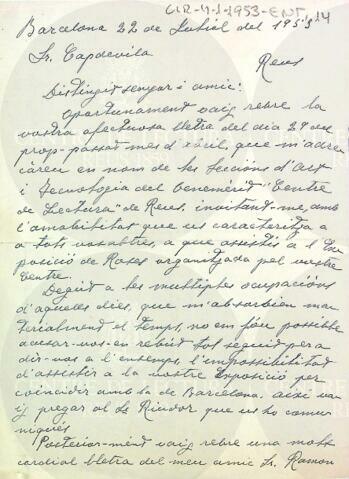 CLR-4-1-1953-ENT. 14
Barcelona 22 de Juliol del 1953
Sr. Capdevila
Reus
Distingit senyor i amic:
Oportunament vaig rebre la
vostra afectuosa lletra del dia 29 del
prop-passat mes d'abril, que m'adre
çàreu en nom de les Seccións d'Art
i Tecnologia del Benemèrit "Centre
de Lectura" de Reus, invitant-me, amb
l'amabilitat que us caracteritja a
a tots vosaltres, a que assistís a l'Ex
posició de Roses organitjada pel vostre
Centre.
Degut a les multiples ocupacións
d'aquells dies, que m'absorbien ma
terialment el temps, no em fóu possible
acusar-vos-en rebut tot seguit per a
dir-vos a l'ensems, l'impossibilitat
d'assistir a la vostre Exposició per
coincidir amb la de Barcelona. Aixó va
ig pregar al Sr Riudor que us ho comu
niqués
Posterior-ment vaig rebre una molt
cordial lletra del meu amic Sr. Ramon